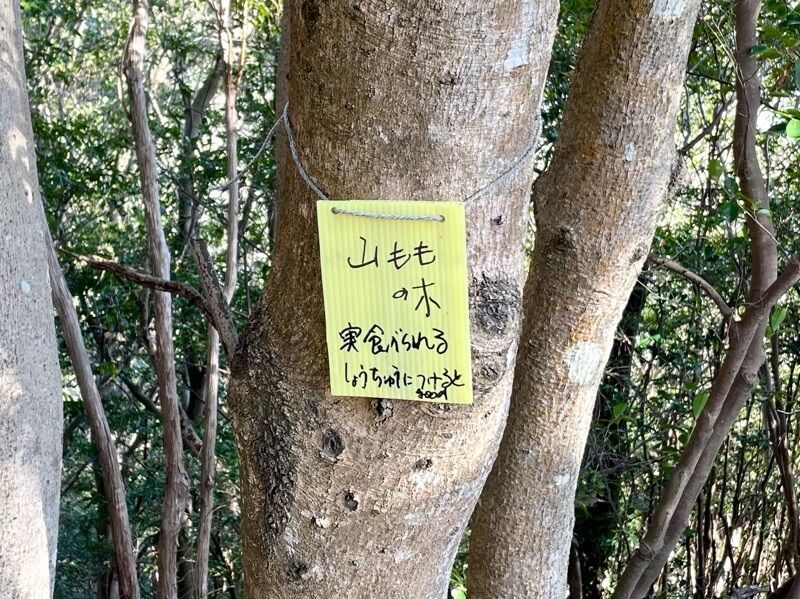 山もも
の木
実食べられる
しょうちゅうにつけると